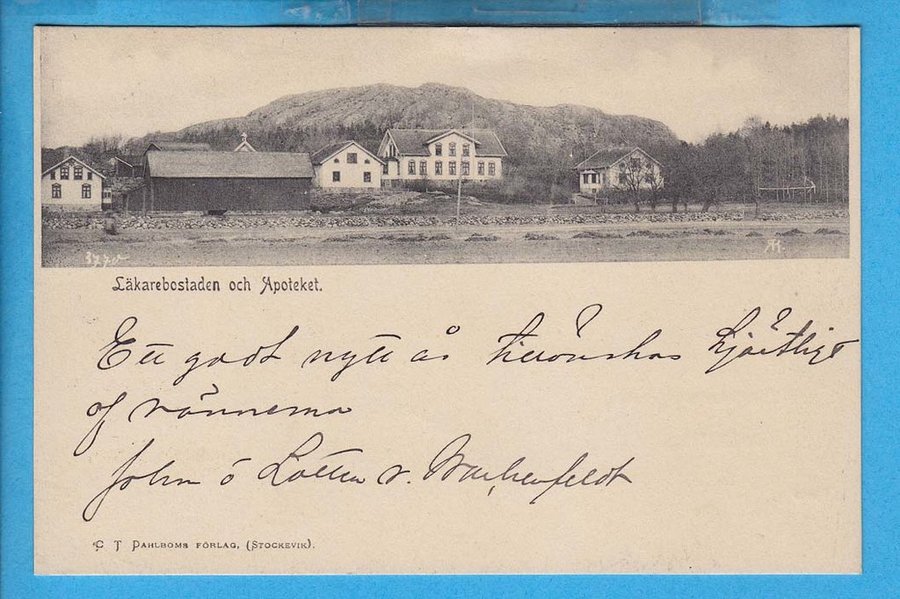 3770
Läkarebostaden och Apoteket.
Ett godt nytt år tillönskas hjärtligt
af vännerna
John o Lotten v.
C T Dahlboms förlag, (Stockevik).